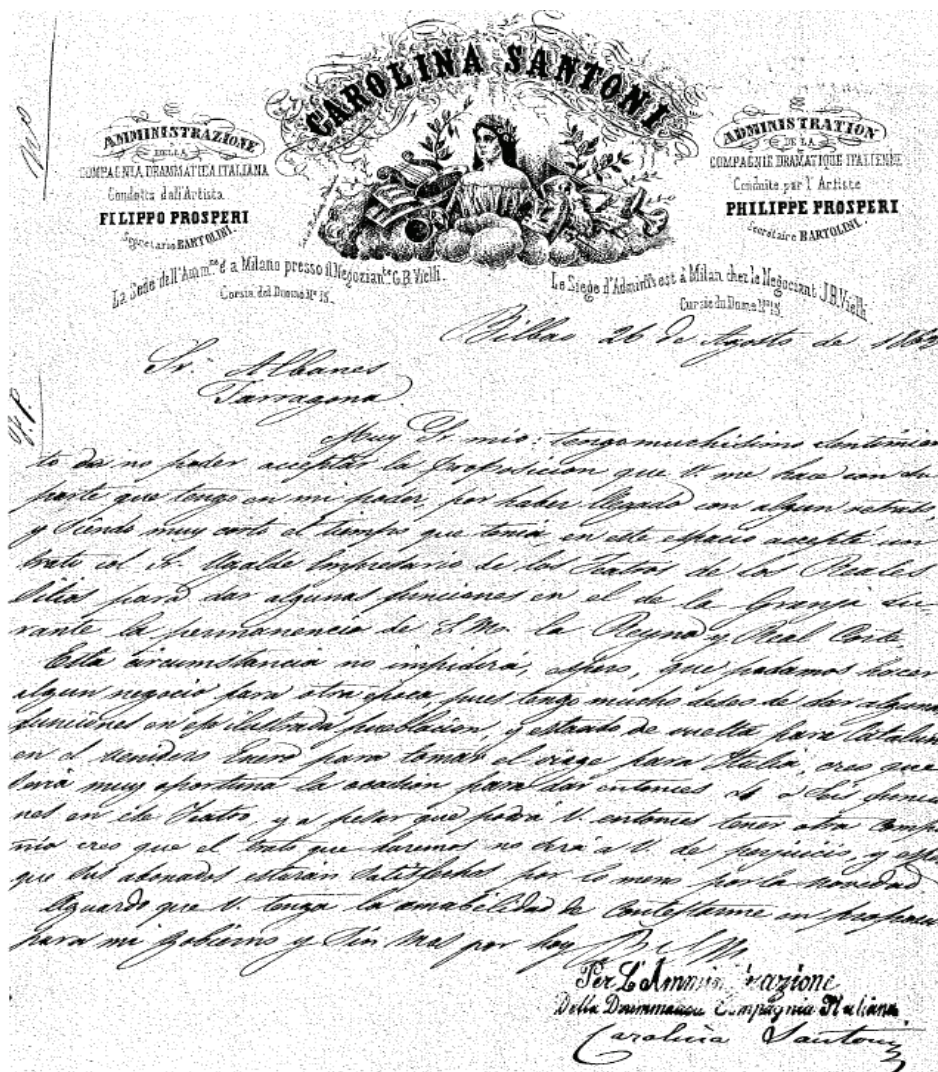 CAROLINA SANTONI
AMMINISTRAZIONE
DELLA
COMPAGNIA DRAMMATICA ITALIANA
Condotta dall'Artista
FILIPPO PROSPERI
Segretario BARTOLINI.
La Sede dell'Amm.ne é a Milano presso il Negoziante G.B. Vielli.
Corsia del Duomo Nº 15.
ADMINISTRATION
DE LA
COMPAGNIE DRAMATIQUE ITALIENNE
Conduite par l'Artiste
PHILIPPE PROSPERI
Secrétaire BARTOLINI.
Le Siege d'Admin. est à Milan chez le Negociant J.B. Vielli
Corsie du Dome Nº 15.
Bilbao 26 de Agosto de 186
Sr. Albanes
Tarragona
Muy Sr. mio: tengo muchisimo sentimien
to de no poder acceptar la proposicion que V. me hace con su
parte que tengo en mi poder, por haber llegado con algun retraso,
y siendo muy corto el tiempo que tenia, en este espacio accepté con
trato col Sr. Ugalde Impresario de los Teatros de los Reales
Sitios para dar algunas funciones en el de la Granja du-
rante la permanencia de S.M. la Reyna y Real Corte
Esta circumstancia no impidirá, espero, que podamos hacer
algun negocio para otra epoca, pues tengo mucho deseo de dar alguna
funciones en esa ilustrada poblacion, y estando de vuelta para Cataluñ
en el venidero Enero para tomar el viage para Italia, creo que
será muy oportuna la ocasion para dar entonces 4 ó seis funcio
nes en ese Teatro, y a pesar que podrá V. entonces tener otra compa
nia creo que el trato que haremos no será a V. de perjuicio, y espe
que sus abonados estarán satisfechos por lo meno por la novedad
Aguardo que V. tenga la amabilidad de contestarme en proposi
para mi gobierno y sin mas por hoy B S M
Per L'Amministrazione
Della Drammatica Compagnia Italiana
Carolina Santoni